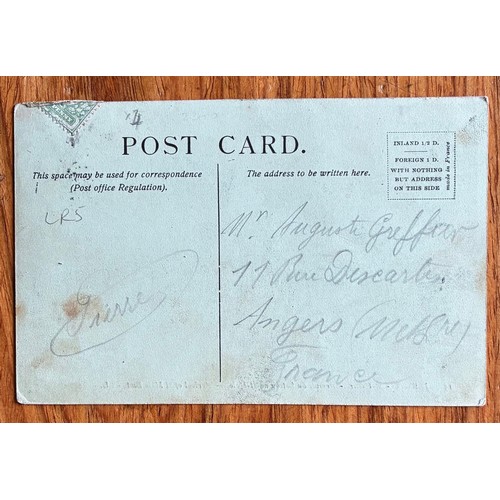 POST CARD.
This space may be used for correspondence
(Post office Regulation).
LR5
Pierre
The address to be written here.
INLAND 1/2 D.
FOREIGN 1 D.
WITH NOTHING
BUT ADDRESS
ON THIS SIDE
made in France
Mr Auguste
11 Rue Descartes
Angers
France